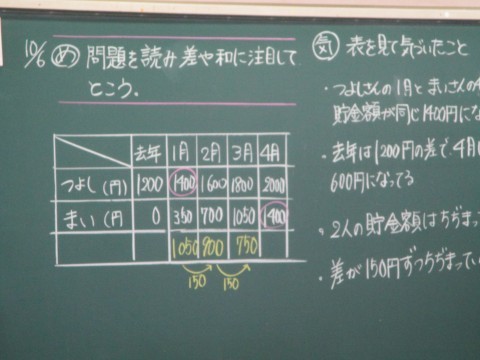 10/6 め 問題を読み差や和に注目して
とこう.
去年 1月 2月 3月 4月
つよし(円) 1200 1400 1600 1800 2000
まい(円 0 350 700 1050 1400
1050 900 750
150 150
気 表を見て気づいたこと
・つよしさんの1月とまいさんの4
貯金額が同じ1400円にな
・去年は1200円の差で、4月
600円になってる
・2人の貯金額はちぢまって
・差が150円ずつちぢまってい